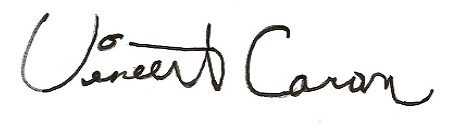 Vincent Caron